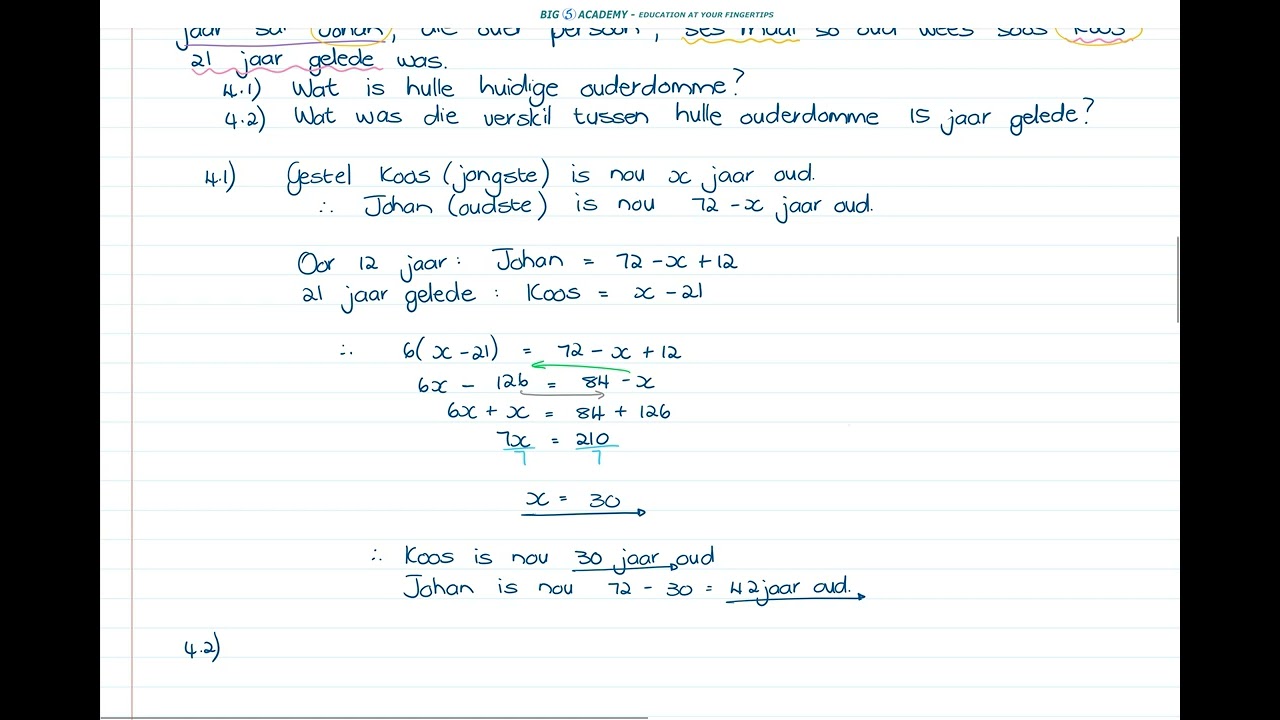 BIG 5 ACADEMY - EDUCATION AT YOUR FINGERTIPS
jaar sal Johan, die ouer persoon, ses maal so oud wees soos Koos
21 jaar gelede was.
4.1) Wat is hulle huidige ouderdomme?
4.2) Wat was die verskil tussen hulle ouderdomme 15 jaar gelede?
4.1) Gestel Koos (jongste) is nou x jaar oud.
∴ Johan (oudste) is nou 72 - x jaar oud.
Oor 12 jaar: Johan = 72 - x + 12
21 jaar gelede : Koos = x - 21
∴ 6(x - 21) = 72 - x + 12
6x - 126 = 84 - x
6x + x = 84 + 126
7x = 210
7 7
x = 30
∴ Koos is nou 30 jaar oud
Johan is nou 72 - 30 = 42 jaar oud.
4.2)